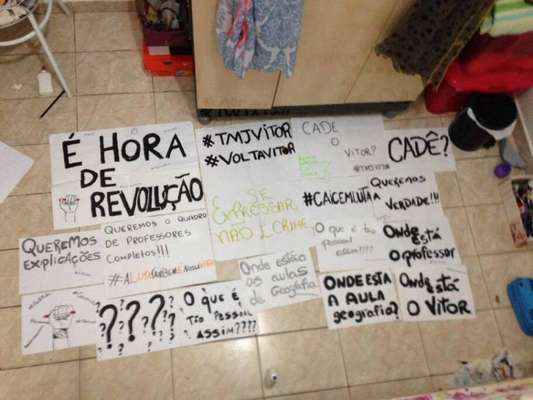 É HORA
DE
REVOLUÇÃO
#TMJVITOR
#VOLTAVITOR
CADE
O
VITOR?
#TMJVITOR
CADÊ?
SE
EXPRESSAR
NÃO É CRIME
#CAICEMLUTA
QUEREMOS
VERDADE!!!
QUEREMOS
EXPLICAÇÕES
QUEREMOS O QUADRO
DE PROFESSORES
COMPLETOS!!!
O que é tão
pessoal
assim????
Onde está
o professor
Onde estão
as aulas
de Geografia
ONDE ESTA
A AULA
geografia?
Onde está
O VITOR
? ? ? ? ?
O que é
Tão PESSOAL
ASSIM????